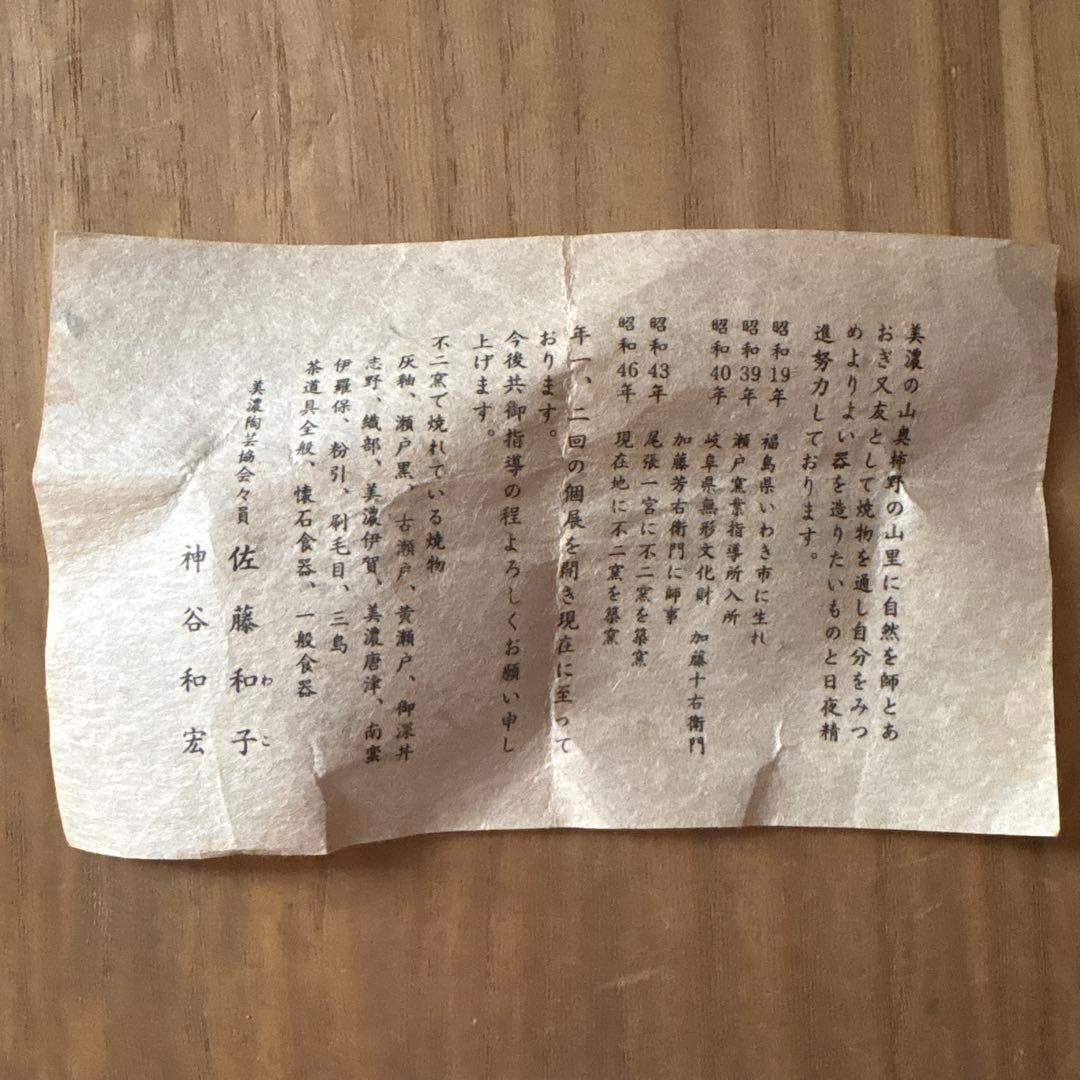 美濃の山奥柿野の山里に自然を師とあ
おぎ又友として焼物を通し自分をみつ
めよりよい器を造りたいものと日夜精
進努力しております。
昭和19年 福島県いわき市に生れ
昭和39年 瀬戸窯業指導所入所
昭和40年 岐阜県無形文化財 加藤十右衛門
加藤芳右衛門に師事
昭和43年 尾張一宮に不二窯を築窯
昭和46年 現在地に不二窯を築窯
年一、二回の個展を開き現在に至って
おります。
今後共御指導の程よろしくお願い申し
上げます。
不二窯で焼れている焼物
灰釉、瀬戸黒、古瀬戸、黄瀬戸、御深丼
志野、織部、美濃伊賀、美濃唐津、南蛮
伊羅保、粉引、刷毛目、三島
茶道具全般、懐石食器、一般食器
美濃陶芸協会々員 佐藤和子
わこ
神谷和宏